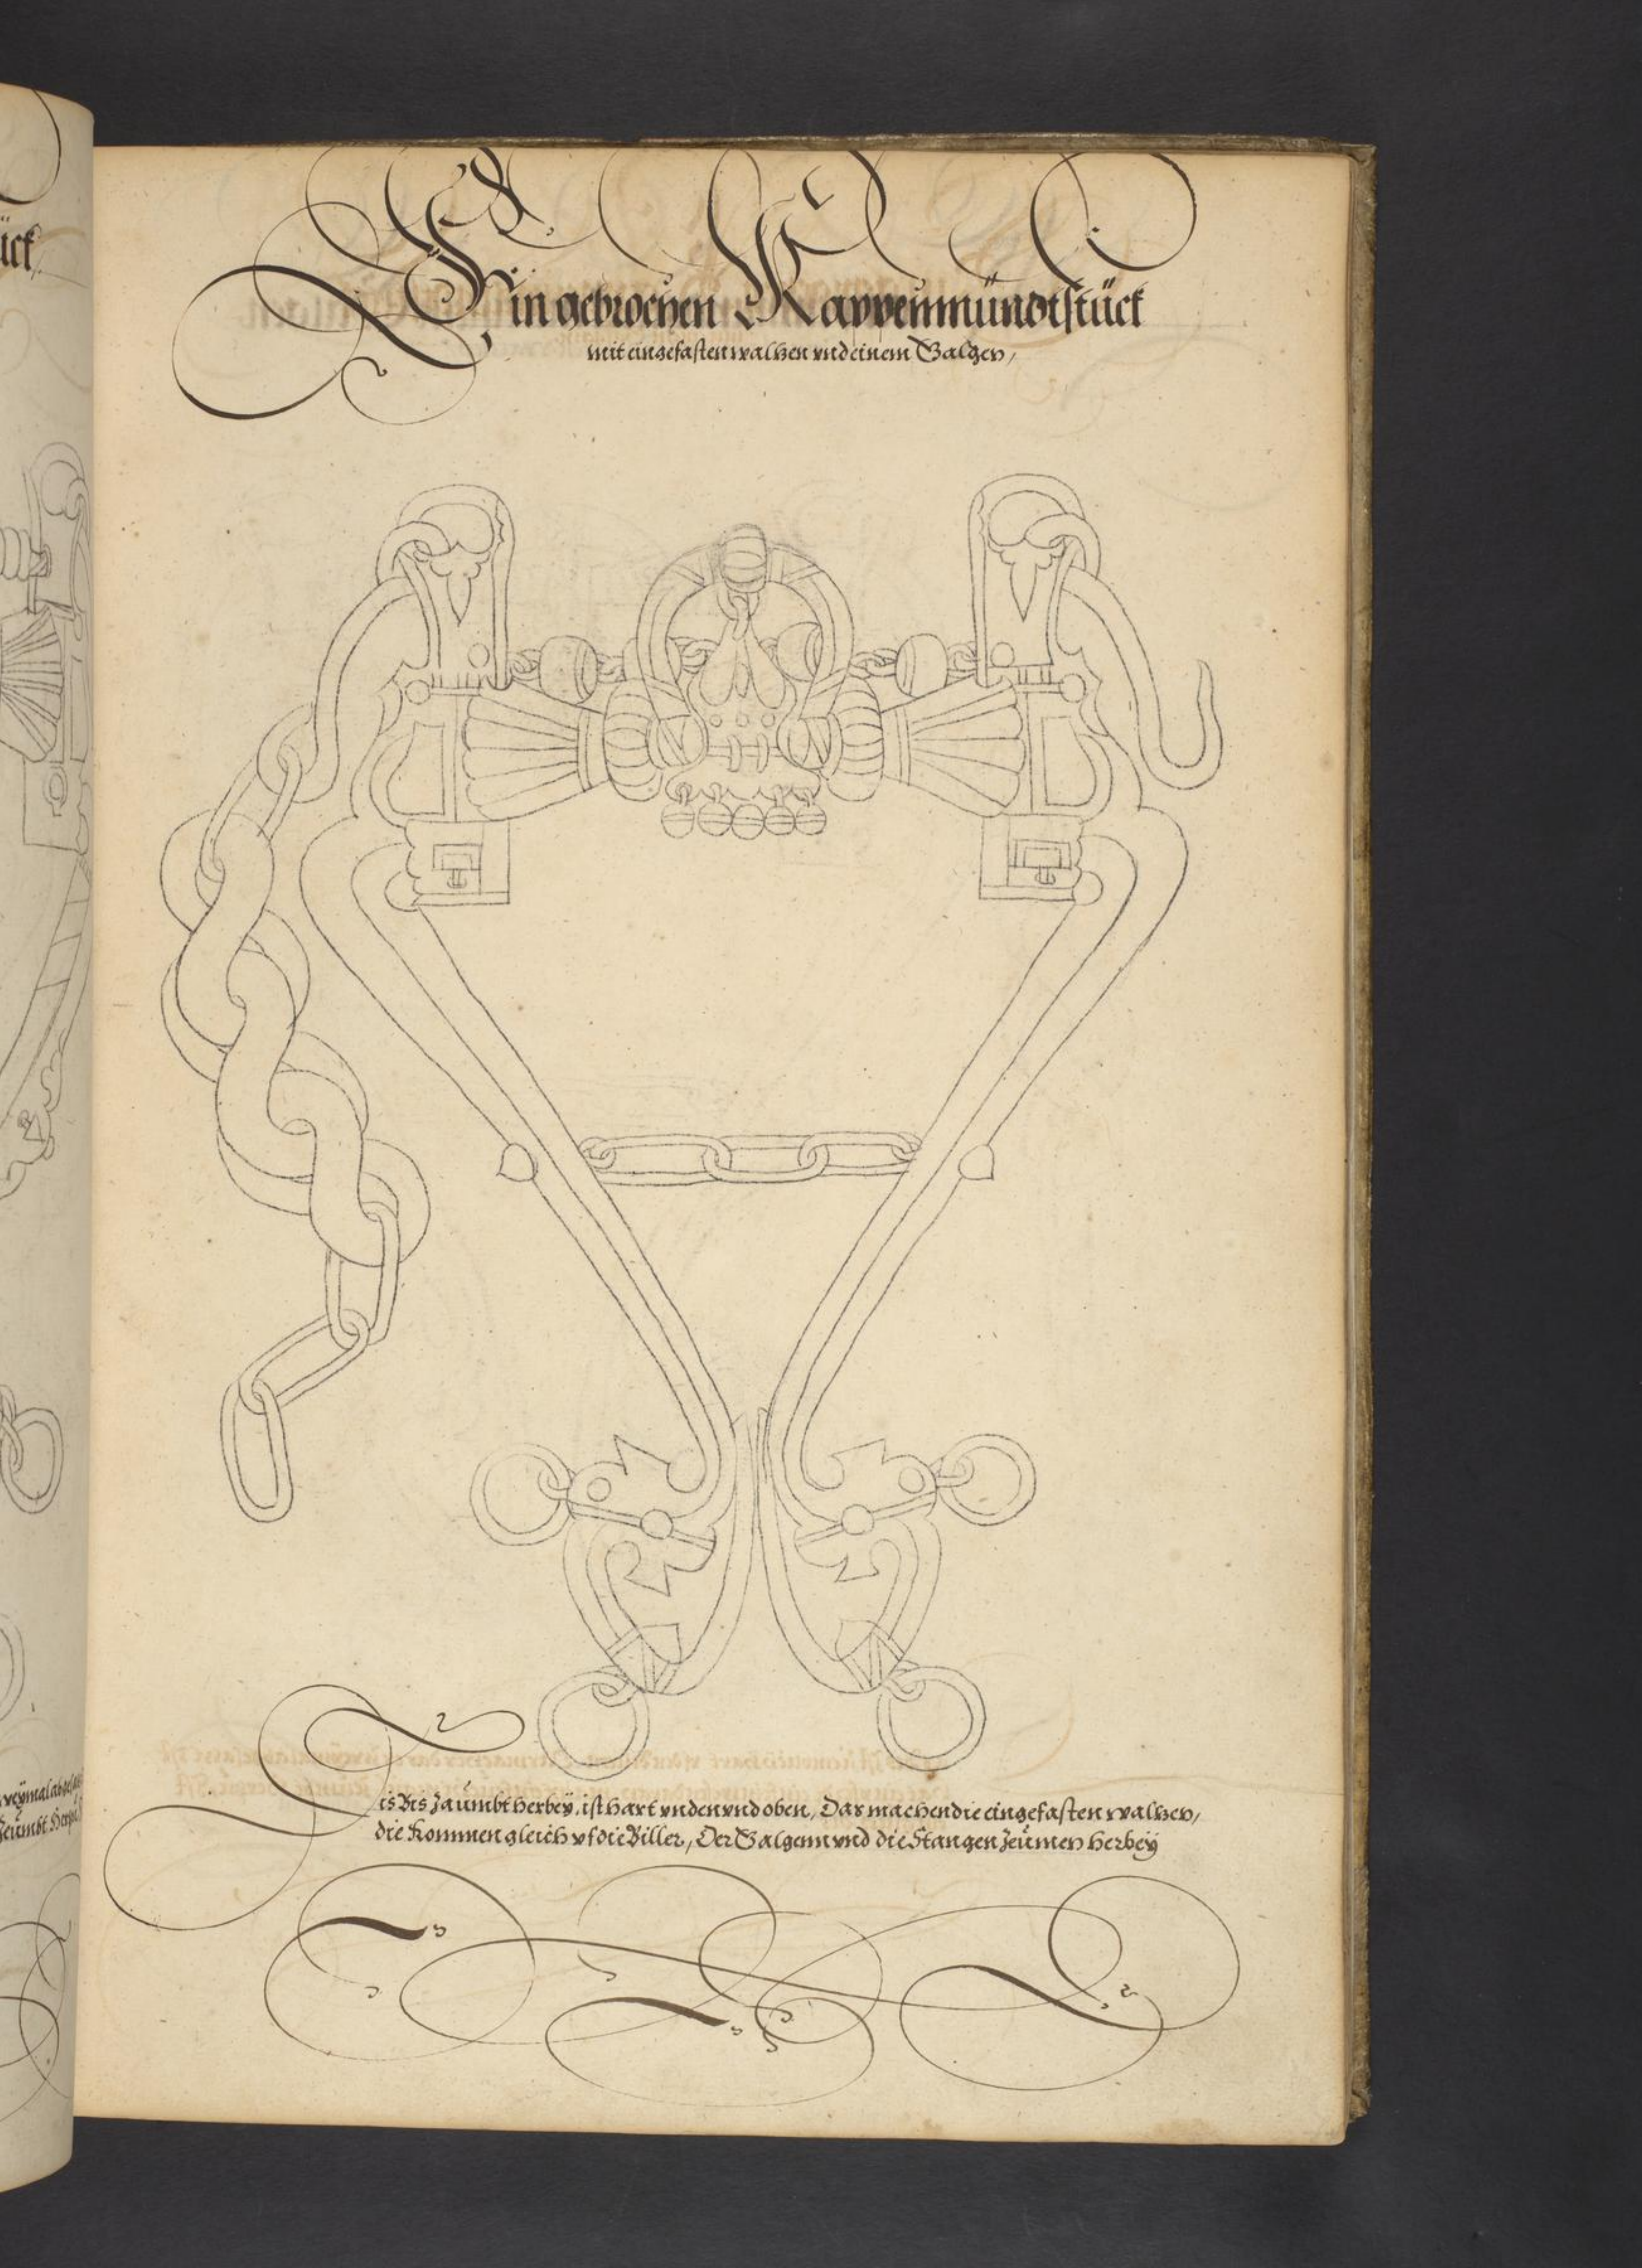 Ein gebrochen Kappenmündtstück
mit eingefasten walhen vnd einem Galgen,
is Bis zaümbt herbeÿ, ist hart vnden vnd oben, Das machen die eingefasten walhen,
die kommen gleich vf die Biller, Der Galgenn vnd die Stangen zeümen herbeÿ
ück